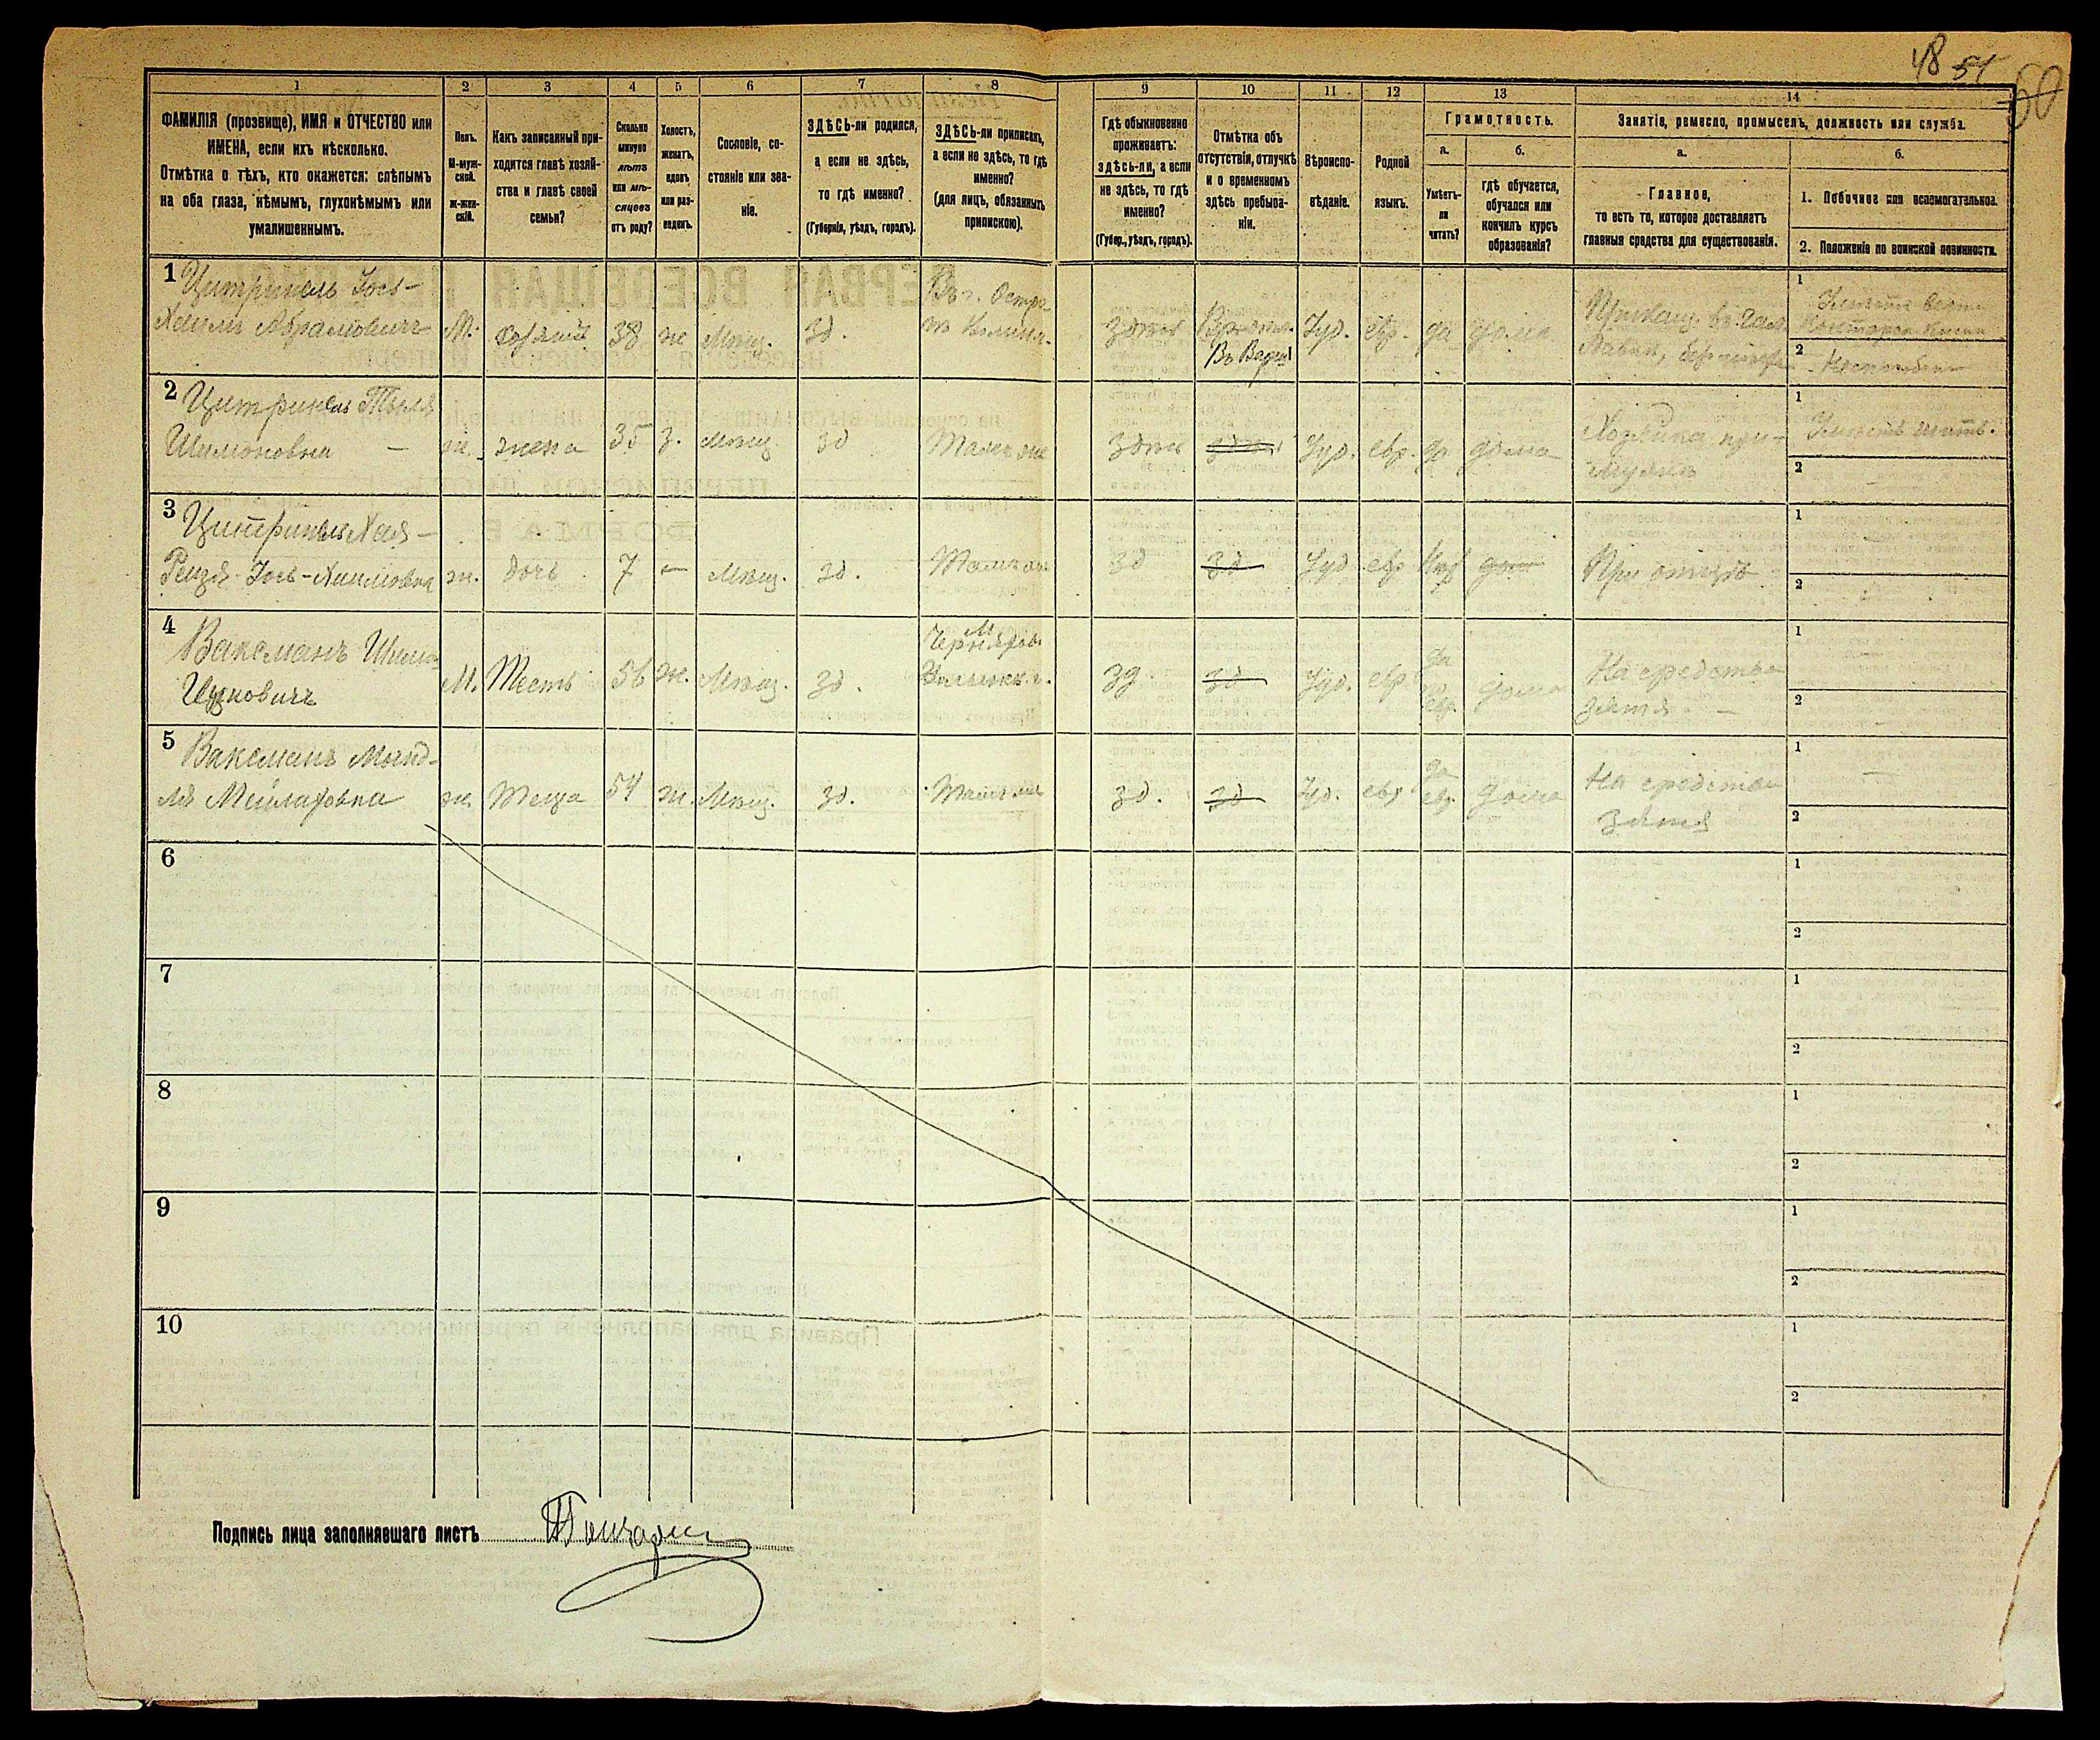 48 51 60
1 2 3 4 5 6 7 8 9 10 11 12 13 14
ФАМИЛІЯ (прозвище), ИМЯ и ОТЧЕСТВО или
ИМЕНА, если ихъ нѣсколько.
Отмѣтка о тѣхъ, кто окажется: слѣпымъ
на оба глаза, нѣмымъ, глухонѣмымъ или
умалишеннымъ.
Полъ.
М-муж-
ской.
Ж-жен-
скій.
Какъ записанный при-
ходится главѣ хозяй-
ства и главѣ своей
семьи?
Сколько
минуло
лѣтъ
или мѣ-
сяцевъ
отъ роду?
Холостъ,
женатъ,
вдовъ
или раз-
веденъ.
Сословіе, со-
стояніе или зва-
ніе.
ЗДѢСЬ-ли родился,
а если не здѣсь,
то гдѣ именно?
(Губернія, уѣздъ, городъ).
ЗДѢСЬ-ли приписанъ,
а если не здѣсь, то гдѣ
именно?
(для лицъ, обязанныхъ
припискою).
Гдѣ обыкновенно
проживаетъ:
здѣсь-ли, а если
не здѣсь, то гдѣ
именно?
(Губер., уѣздъ, городъ).
Отмѣтка объ
отсутствіи, отлучкѣ
и о временномъ
здѣсь пребыва-
ніи.
Вѣроиспо-
вѣданіе.
Родной
языкъ.
Грамотность.
а.
Умѣетъ-
ли
читать?
б.
гдѣ обучается,
обучался или
кончилъ курсъ
образованія?
Занятіе, ремесло, промыселъ, должность или служба.
а.
Главное,
то есть то, которое доставляетъ
главныя средства для существованія.
б.
1. Побочное или вспомогательное.
2. Положеніе по воинской повинности.
1 Цитринель Іось-
Хаимъ Абрамовичъ М. хозяинъ 38 ж Мѣщ. зд. здѣсь Въ Варш Іуд. евр. да дома
1
2
2 Цитринель Тыля
Шимоновна — ж. жена 35 з. мѣщ. зд Тамъ же здѣсь Іуд. евр. да дома Хозяйка при
мужѣ
1
2 —
3 Цитринель Хая-
Рейзя Іось-Хаимовна ж. дочь 7 — Мѣщ. зд. Тамъ же зд зд Іуд. евр При отцѣ
1 —
2
4 Ваксманъ Шимонъ
Ицковичъ М. Тесть 56 ж. Мѣщ. зд. зд. зд Іуд. евр да евр. дома На средства
зятя —
1 —
2
5 Ваксманъ Мынд-
ля Мейлаховна ж. Теща 54 ж. Мѣщ. зд. Тамъ же зд. зд Іуд. евр да евр. дома На средства
зятя
1 —
2
6
1
2
7
1
2
8
1
2
9
1
2
10
1
2
Подпись лица заполнявшаго листъ